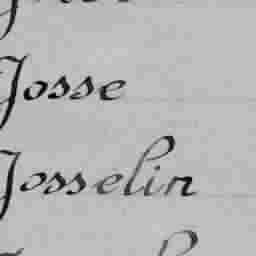 Josse
Josselin